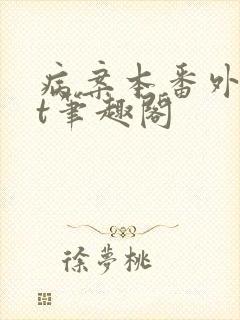 病案本番外
t笔趣阁
徐夢桃